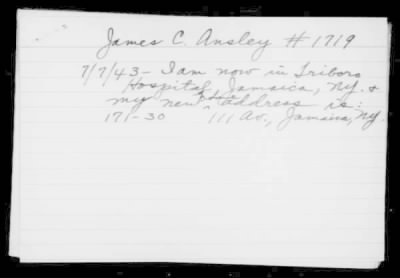 James C. Ansley #1719
7/7/43 - I am now in Triboro
Hospital, Jamaica, N.Y. &
my new home address is:
171-30 111 Av., Jamaica, N.Y.